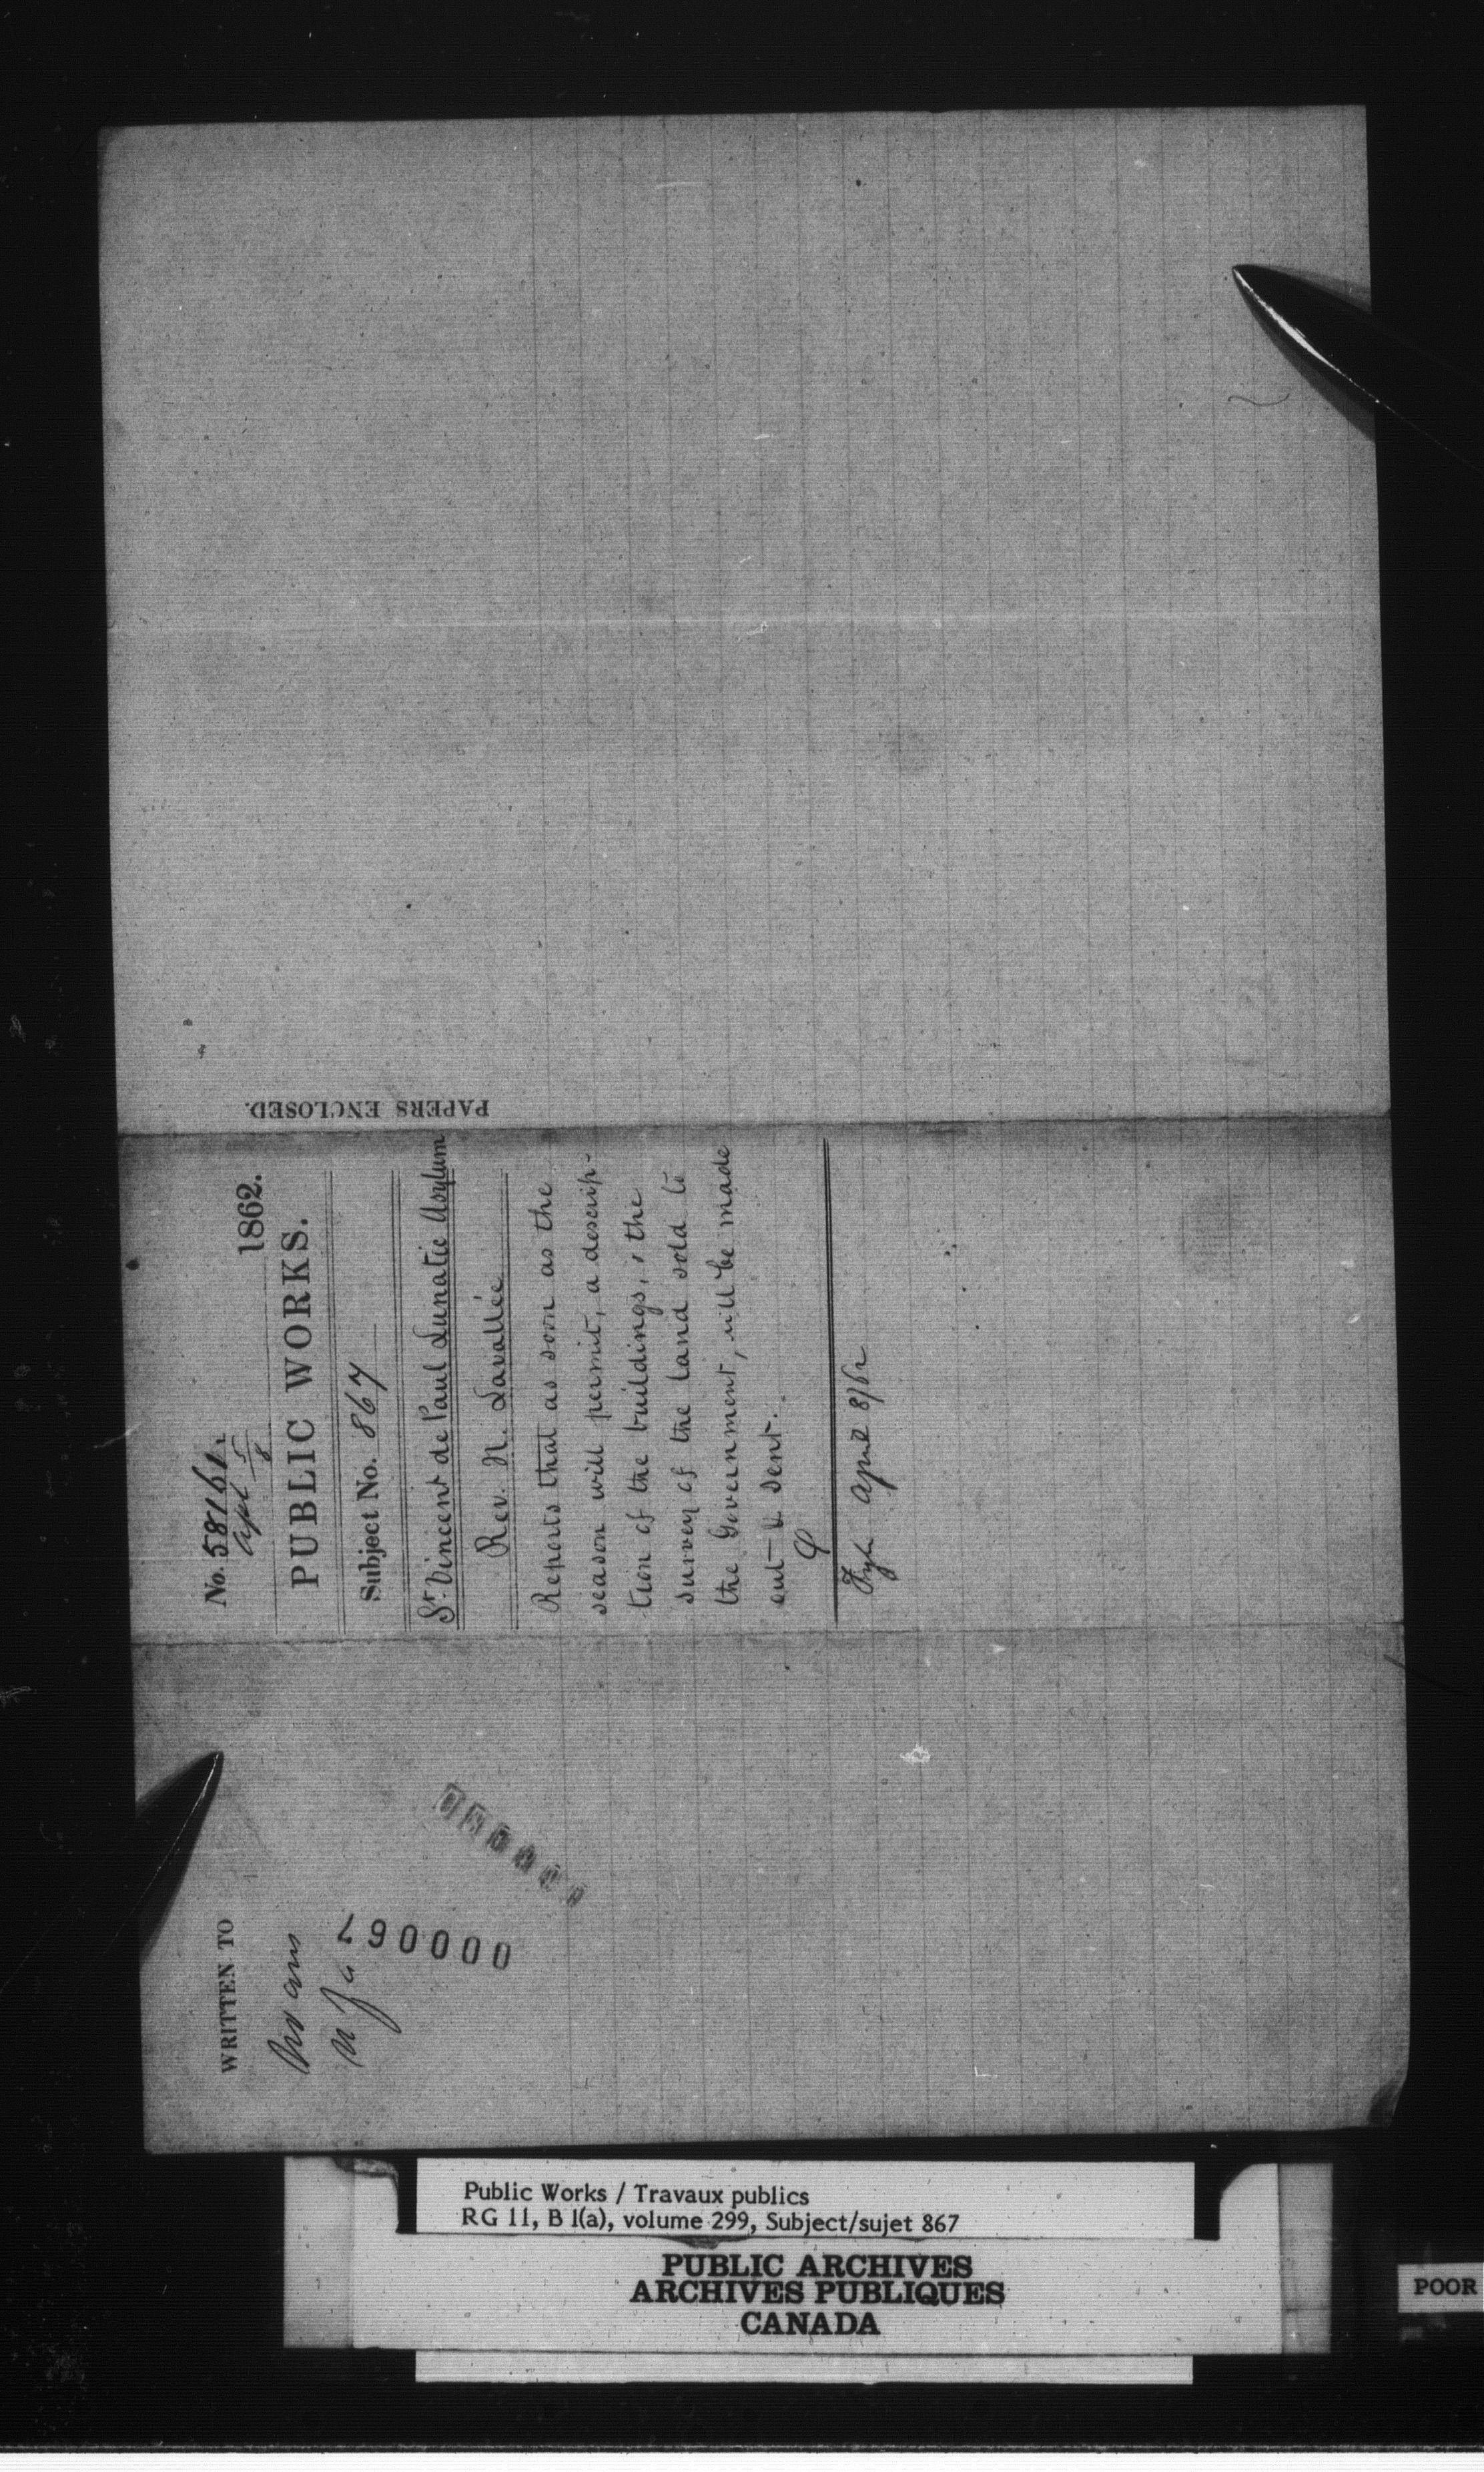 No. 58161
Apl 5/8 1862.
PUBLIC WORKS.
Subject No. 867
St. Vincent de Paul Lunatic Asylum
Rev. N. Lavallée
Reports that as soon as the
season will permit, a descrip-
tion of the buildings, & the
survey of the land sold to
the Government, will be made
out & sent.
April 8/62
PAPERS ENCLOSED.
WRITTEN TO
000067
Public Works / Travaux publics
RG 11, B 1(a), volume 299, Subject/sujet 867
PUBLIC ARCHIVES
ARCHIVES PUBLIQUES
CANADA
POOR